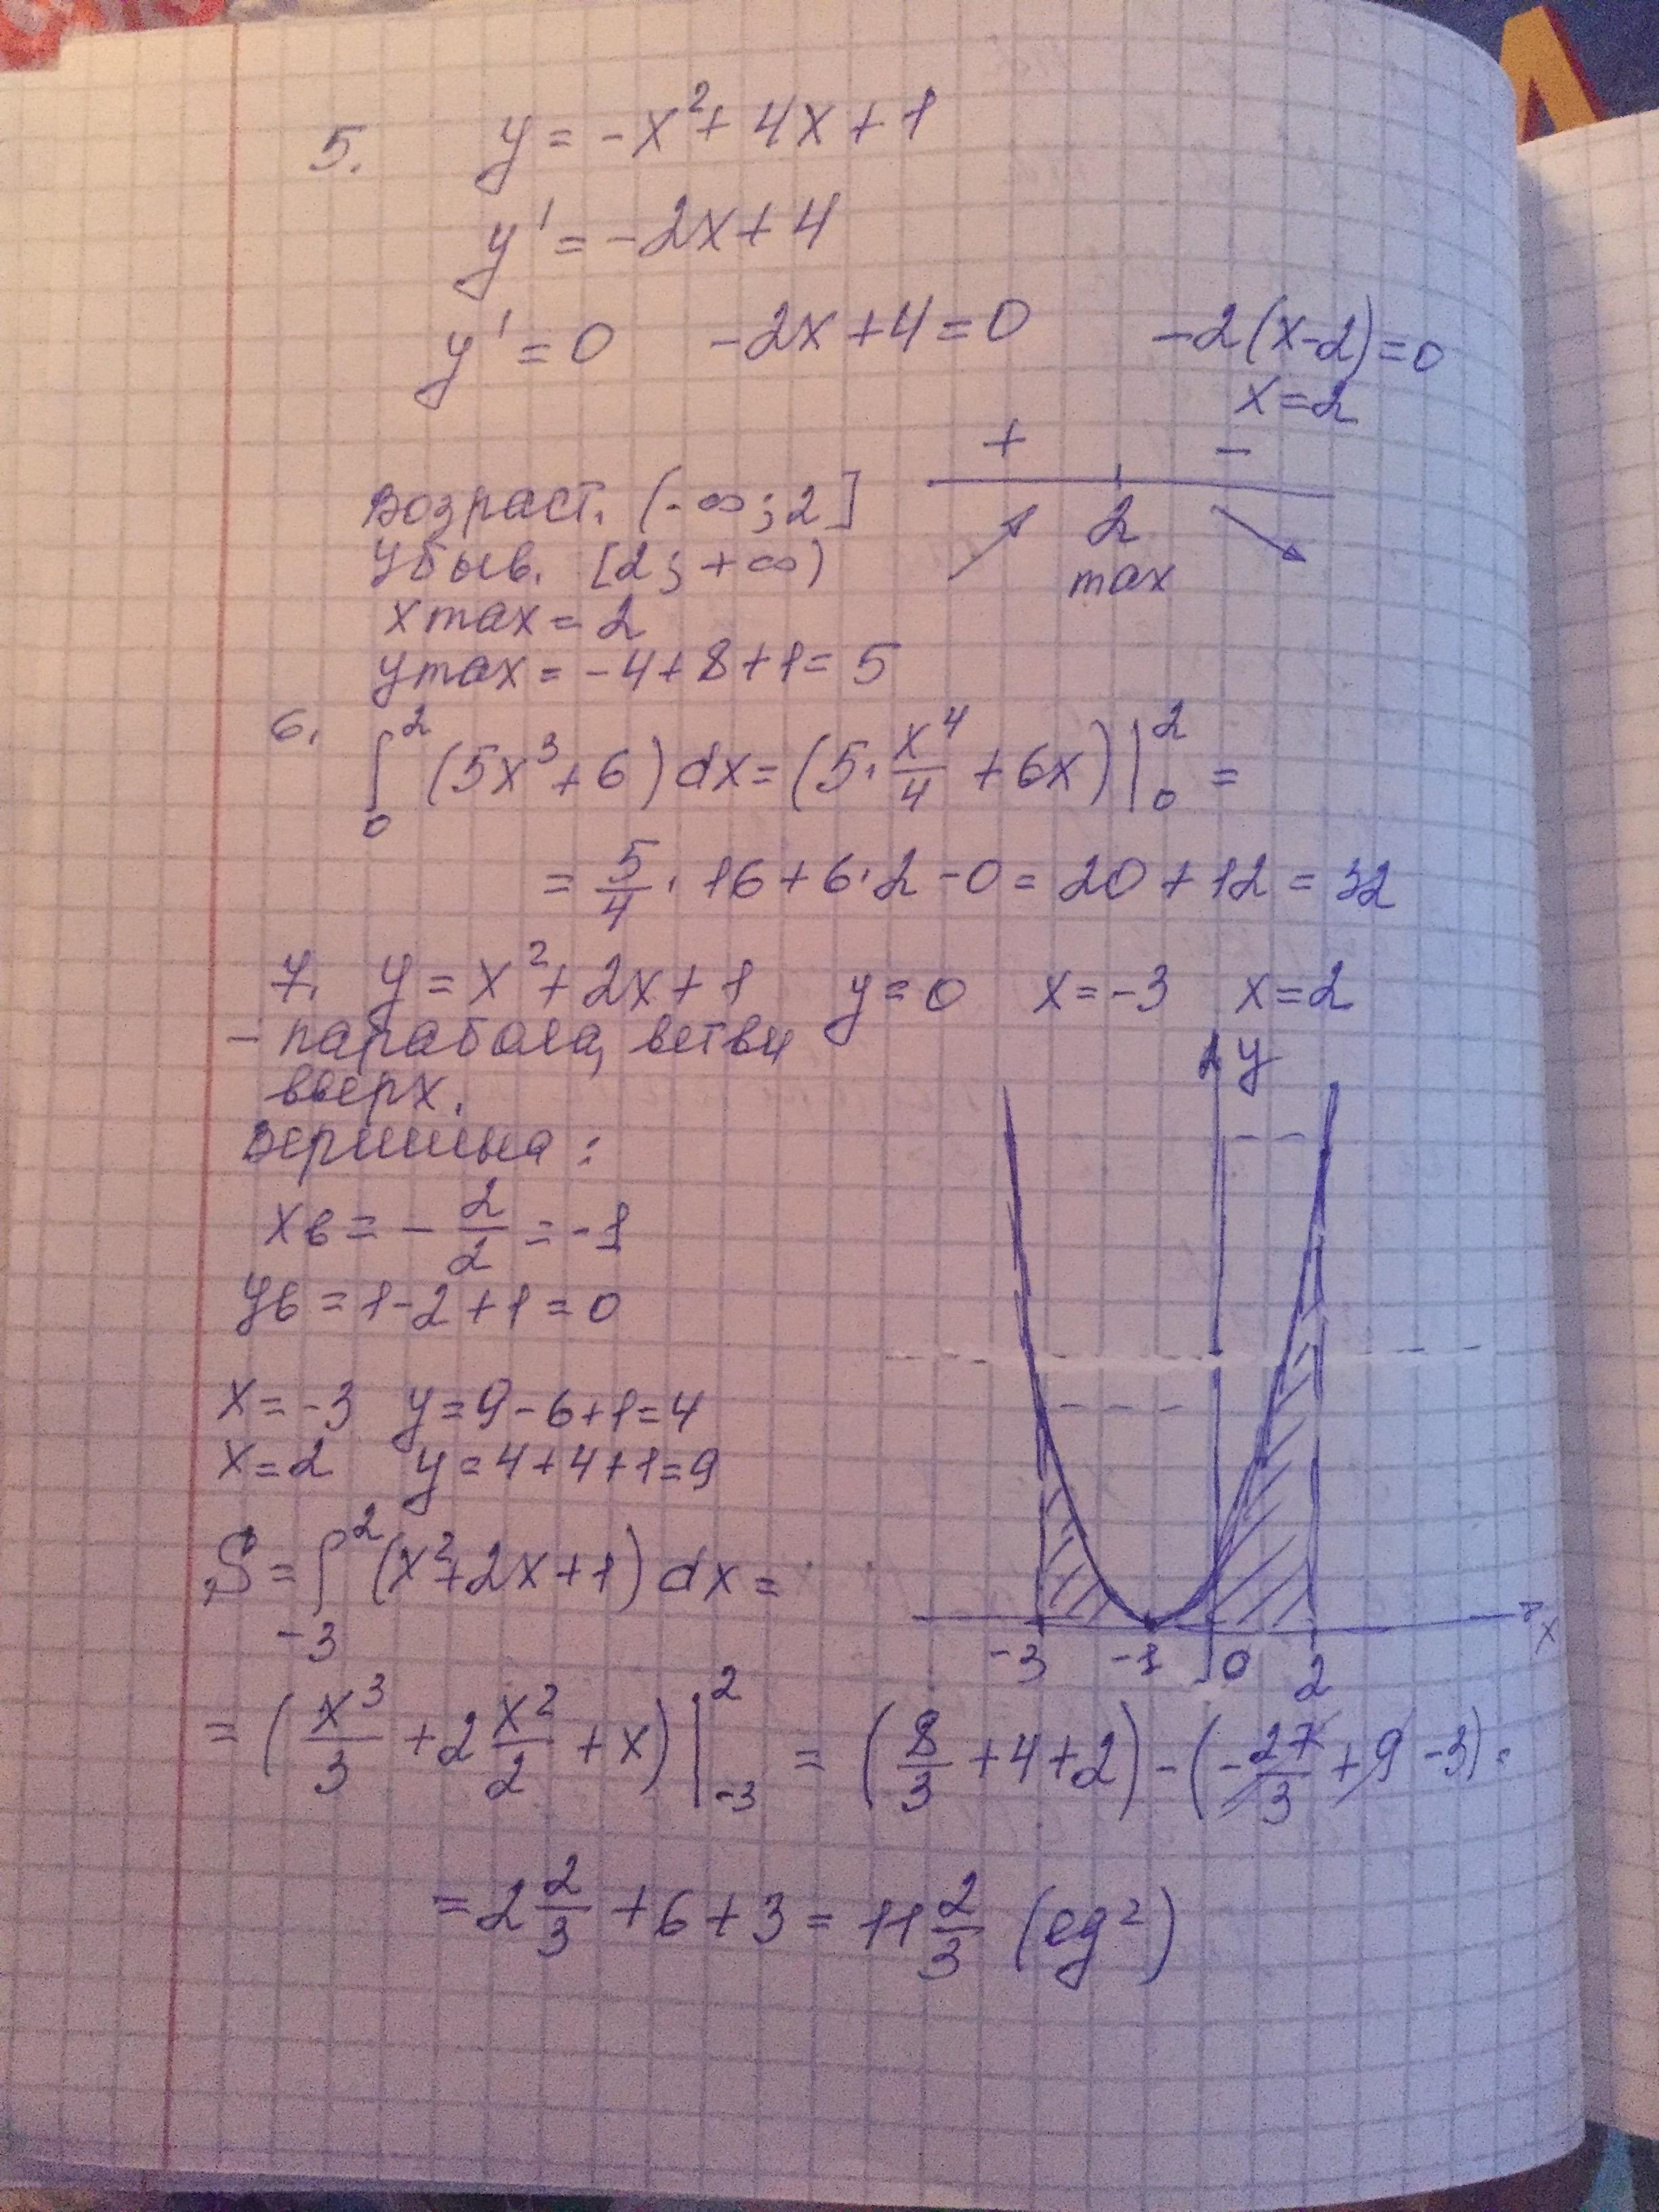 5. y = -x² + 4x + 1
y' = -2x + 4
y' = 0 -2x + 4 = 0 -2(x-2) = 0
x = 2
+ -
Возраст. (-∞; 2]
2
Убыв. [2; +∞)
max
x max = 2
y max = -4 + 8 + 1 = 5
6. ∫₀² (5x³ + 6) dx = (5 · x⁴/4 + 6x) |₀² =
= 5/4 · 16 + 6 · 2 - 0 = 20 + 12 = 32
7. y = x² + 2x + 1 y = 0 x = -3 x = 2
- парабола, ветви
вверх.
y
Вершина:
xв = - 2/2 = -1
yв = 1 - 2 + 1 = 0
x = -3 y = 9 - 6 + 1 = 4
x = 2 y = 4 + 4 + 1 = 9
S = ∫₋₃² (x² + 2x + 1) dx =
x
-3 -1 0 2
= (x³/3 + 2 x²/2 + x) |₋₃² = (8/3 + 4 + 2) - (-27/3 + 9 - 3) =
= 2 2/3 + 6 + 3 = 11 2/3 (ед²)